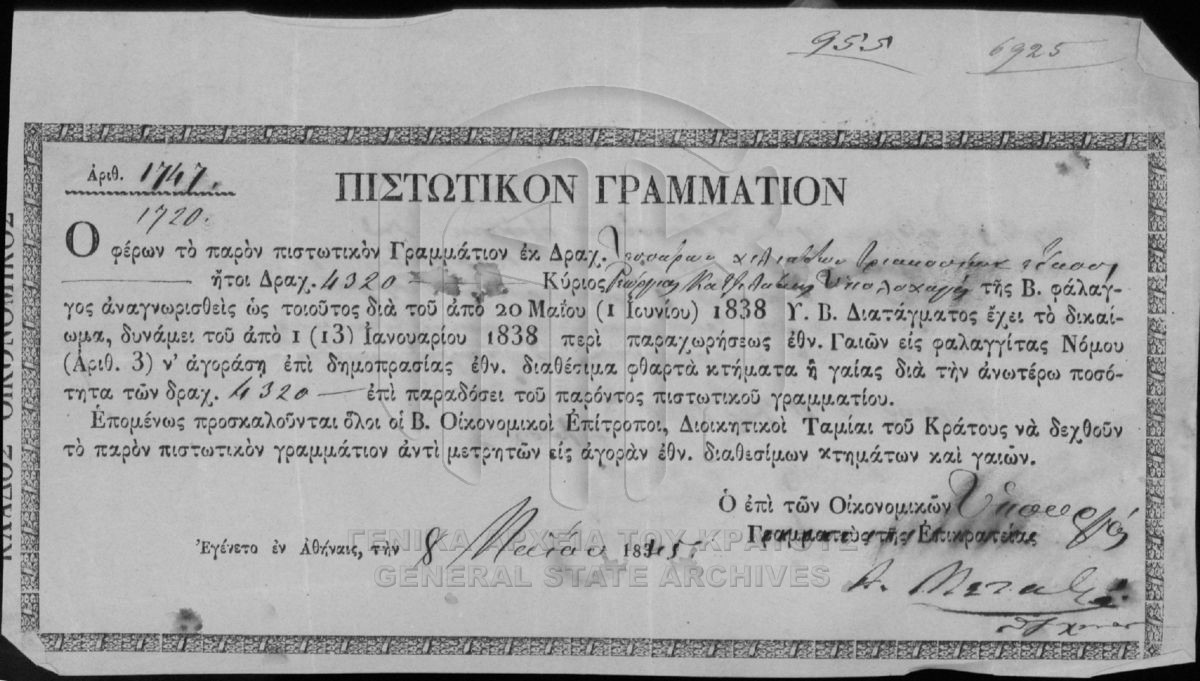 955 6925
Ἀριθ. 1747.
ΠΙΣΤΩΤΙΚΟΝ ΓΡΑΜΜΑΤΙΟΝ
1720.
Ο φέρων τὸ παρὸν πιστωτικὸν Γραμμάτιον ἐκ Δραχ. Τεσσάρων χιλιάδων τριακοσίων εἴκοσι
ἤτοι Δραχ. 4320 — Κύριος Γεώργιος Ὑπολοχαγὸς τῆς Β. φάλαγ-
γος ἀναγνωρισθεὶς ὡς τοιοῦτος διὰ τοῦ ἀπὸ 20 Μαΐου (1 Ἰουνίου) 1838 Υ. Β. Διατάγματος ἔχει τὸ δικαί-
ωμα, δυνάμει τοῦ ἀπὸ 1 (13) Ἰανουαρίου 1838 περὶ παραχωρήσεως ἐθν. Γαιῶν εἰς φαλαγγίτας Νόμου
(Ἀριθ. 3) ν' ἀγοράσῃ ἐπὶ δημοπρασίας ἐθν. διαθέσιμα φθαρτὰ κτήματα ἢ γαίας διὰ τὴν ἀνωτέρω ποσό-
τητα τῶν δραχ. 4320 — ἐπὶ παραδόσει τοῦ παρόντος πιστωτικοῦ γραμματίου.
Ἑπομένως προσκαλοῦνται ὅλοι οἱ Β. Οἰκονομικοὶ Ἐπίτροποι, Διοικητικοὶ Ταμίαι τοῦ Κράτους νὰ δεχθοῦν
τὸ παρὸν πιστωτικὸν γραμμάτιον ἀντὶ μετρητῶν εἰς ἀγορὰν ἐθν. διαθεσίμων κτημάτων καὶ γαιῶν.
Ὁ ἐπὶ τῶν Οἰκονομικῶν Ὑπουργός
Γραμματεὺς τῆς Ἐπικρατείας
Ἐγένετο ἐν Ἀθήναις, τὴν 8 Μαΐου 1845
Α. Μεταξᾶς
ΚΛΑΔΟΣ ΟΙΚΟΝΟΜΙΚΟΣ
ΓΕΝΙΚΑ ΑΡΧΕΙΑ ΤΟΥ ΚΡΑΤΟΥΣ
GENERAL STATE ARCHIVES